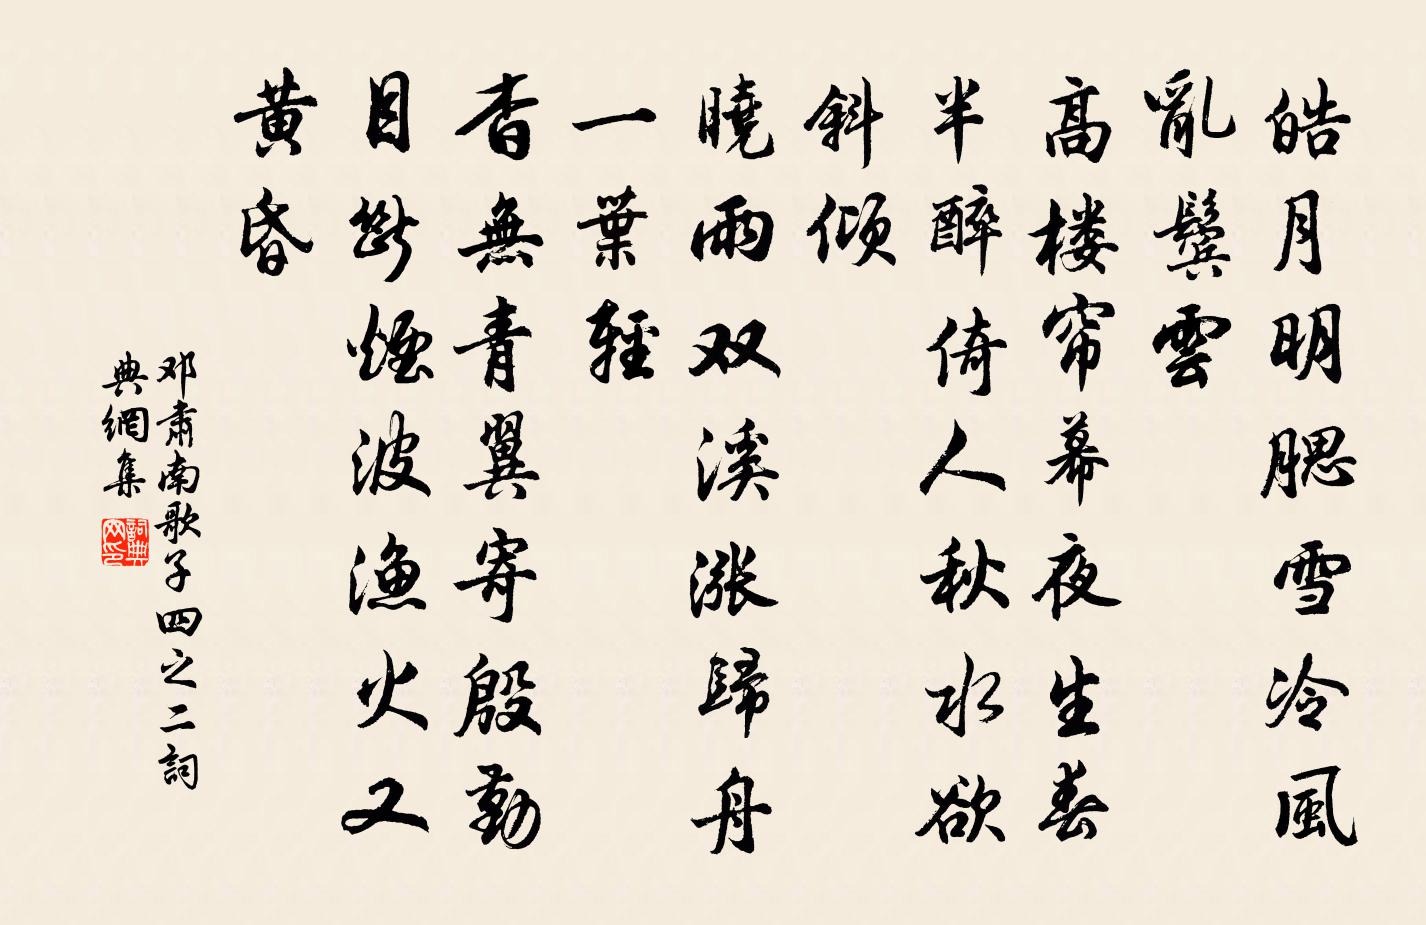 皓月明腮雪冷風
亂鬓雲
高楼帘幕夜生春
半醉倚人秋水欲
斜倾
曉雨双溪漲歸舟
一葉輕
杳無青翼寄殷勤
目斷煙波漁火又
黄昏
邓肃南歌子四之二詞
典網集
詞典网印